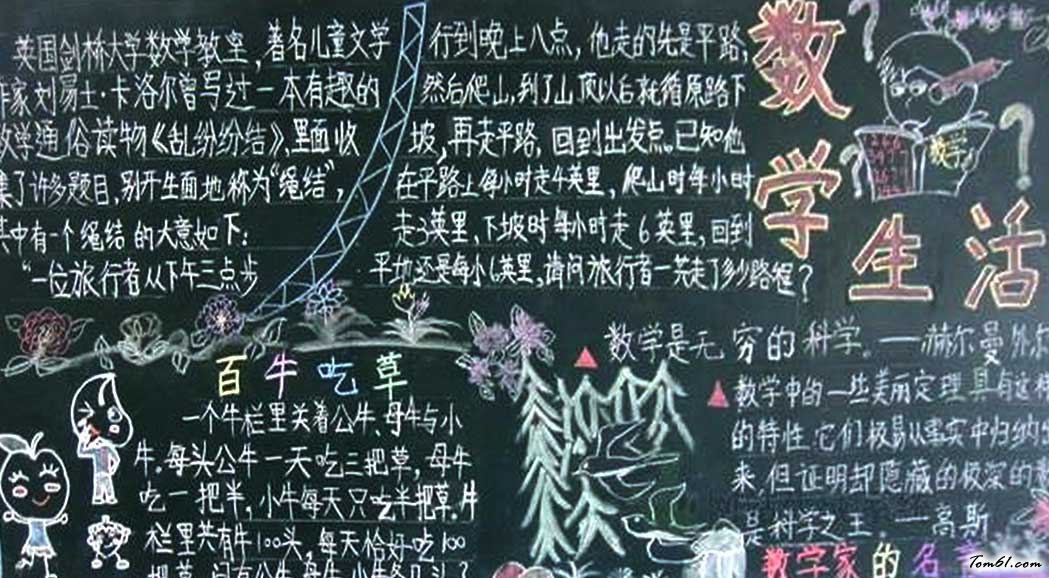 数学生活
英国剑桥大学数学教室,著名儿童文学
作家刘易士·卡洛尔曾写过一本有趣的
数学通俗读物《乱纷纷结》,里面收
集了许多题目,别开生面地称为“绳结”,
其中有一个绳结的大意如下:
“一位旅行者从下午三点步
行到晚上八点,他走的先是平路,
然后爬山,到了山顶以后就循原路下
坡,再走平路,回到出发点。已知他
在平路上每小时走4英里,爬山时每小时
走3英里,下坡时每小时走6英里,回到
平地还是每小英里,请问旅行者一共走了多少路程?
数学
百牛吃草
一个牛栏里关着公牛、母牛与小
牛.每头公牛一天吃三把草,母牛
吃一把半,小牛每天只吃半把草.牛
栏里共有牛100头,每天恰好吃100
把草,问有公牛,母牛,小牛各几头?
数学是无穷的科学。——赫尔曼外尔
数学中的一些美丽定理具有这样
的特性.它们极易从事实中归纳
来,但证明却隐藏的极深的数
是科学之王 ——高斯
数学家的名言
Tom61.com